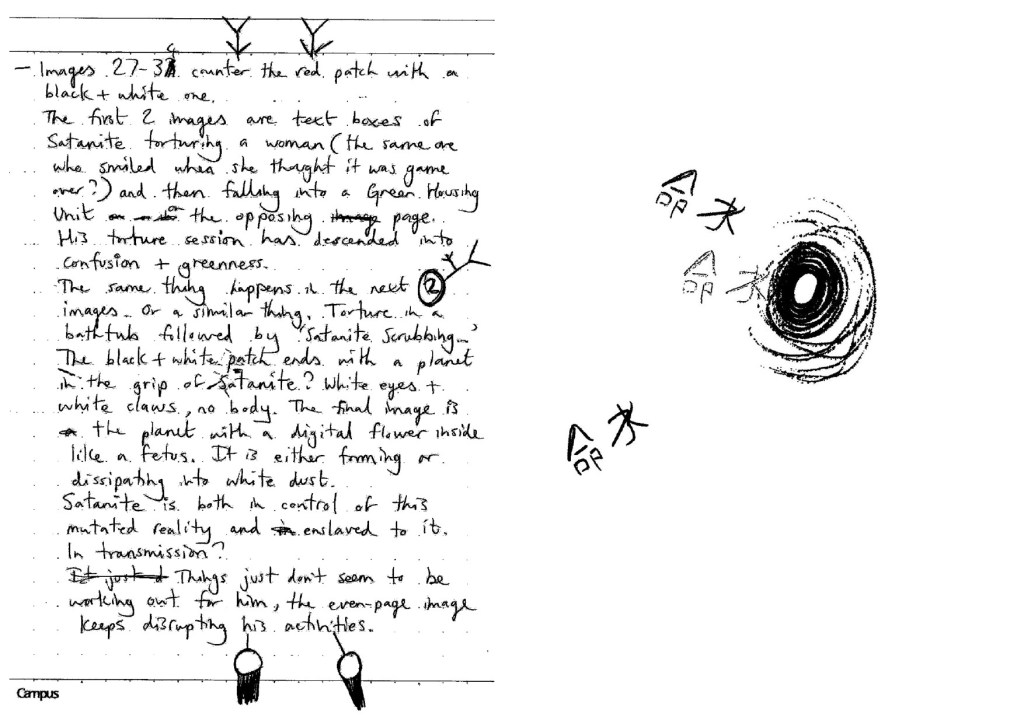 - Images 27-34 counter the red patch with a
black + white one.
The first 2 images are text boxes of
Satanite torturing a woman (the same one
who smiled when she thought it was game
over?) and then falling into a Green Housing
Unit on the opposing page.
His torture session has descended into
confusion + greenness.
The same thing happens in the next 2
images. Or a similar thing. Torture in a
bathtub followed by "Satanite Scrubbing..."
The black + white patch ends with a planet
in the grip of Satanite? White eyes +
white claws, no body. The final image is
the planet with a digital flower inside
like a fetus. It is either forming or
dissipating into white dust.
Satanite is both in control of this
mutated reality and enslaved to it.
In transmission?
Things just don't seem to be
working out for him, the even-page image
keeps disrupting his activities.
Campus
命水
命水
命水